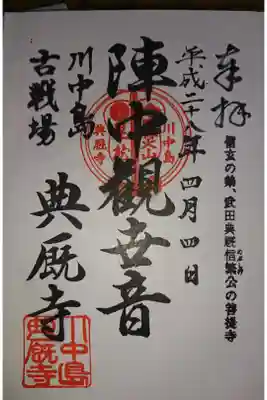 奉拝
信玄の弟、武田典厩信繁公の菩提寺
のぶしげ
平成二十八年 四月 四日
陣中観世音
川中島
古戦場
典厩寺
川中島
典厩寺
川中島
典厩寺